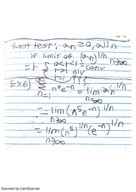 Root test: aₙ ≥ 0, all n
if limit of (aₙ)^1/n n→∞
= L if 0≤L<1 = conv
L>1 div
EX6) ∞Σn=1 n⁵e⁻ⁿ = lim n→∞ aₙ^1/n
= lim n→∞ (n⁵e⁻ⁿ)^1/n
= lim n→∞ (n⁵)^1/n (e⁻ⁿ)^1/n
Scanned by CamScanner